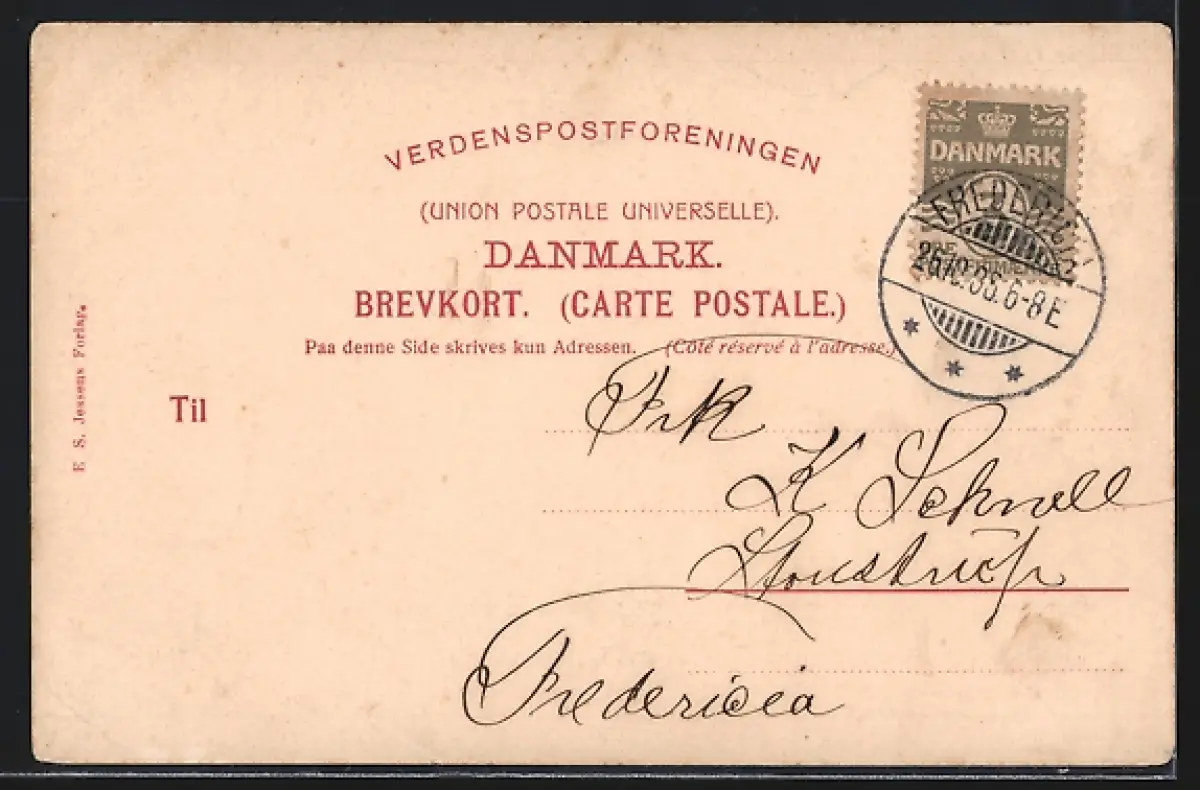 VERDENSPOSTFORENINGEN
(UNION POSTALE UNIVERSELLE).
DANMARK.
BREVKORT. (CARTE POSTALE.)
Paa denne Side skrives kun Adressen. (Côté réservé à l'adresse.)
E. S. Jessens Forlag.
Til
DANMARK
FREDERICIA
6-8 E
Frk
K Schnell
Fredericia